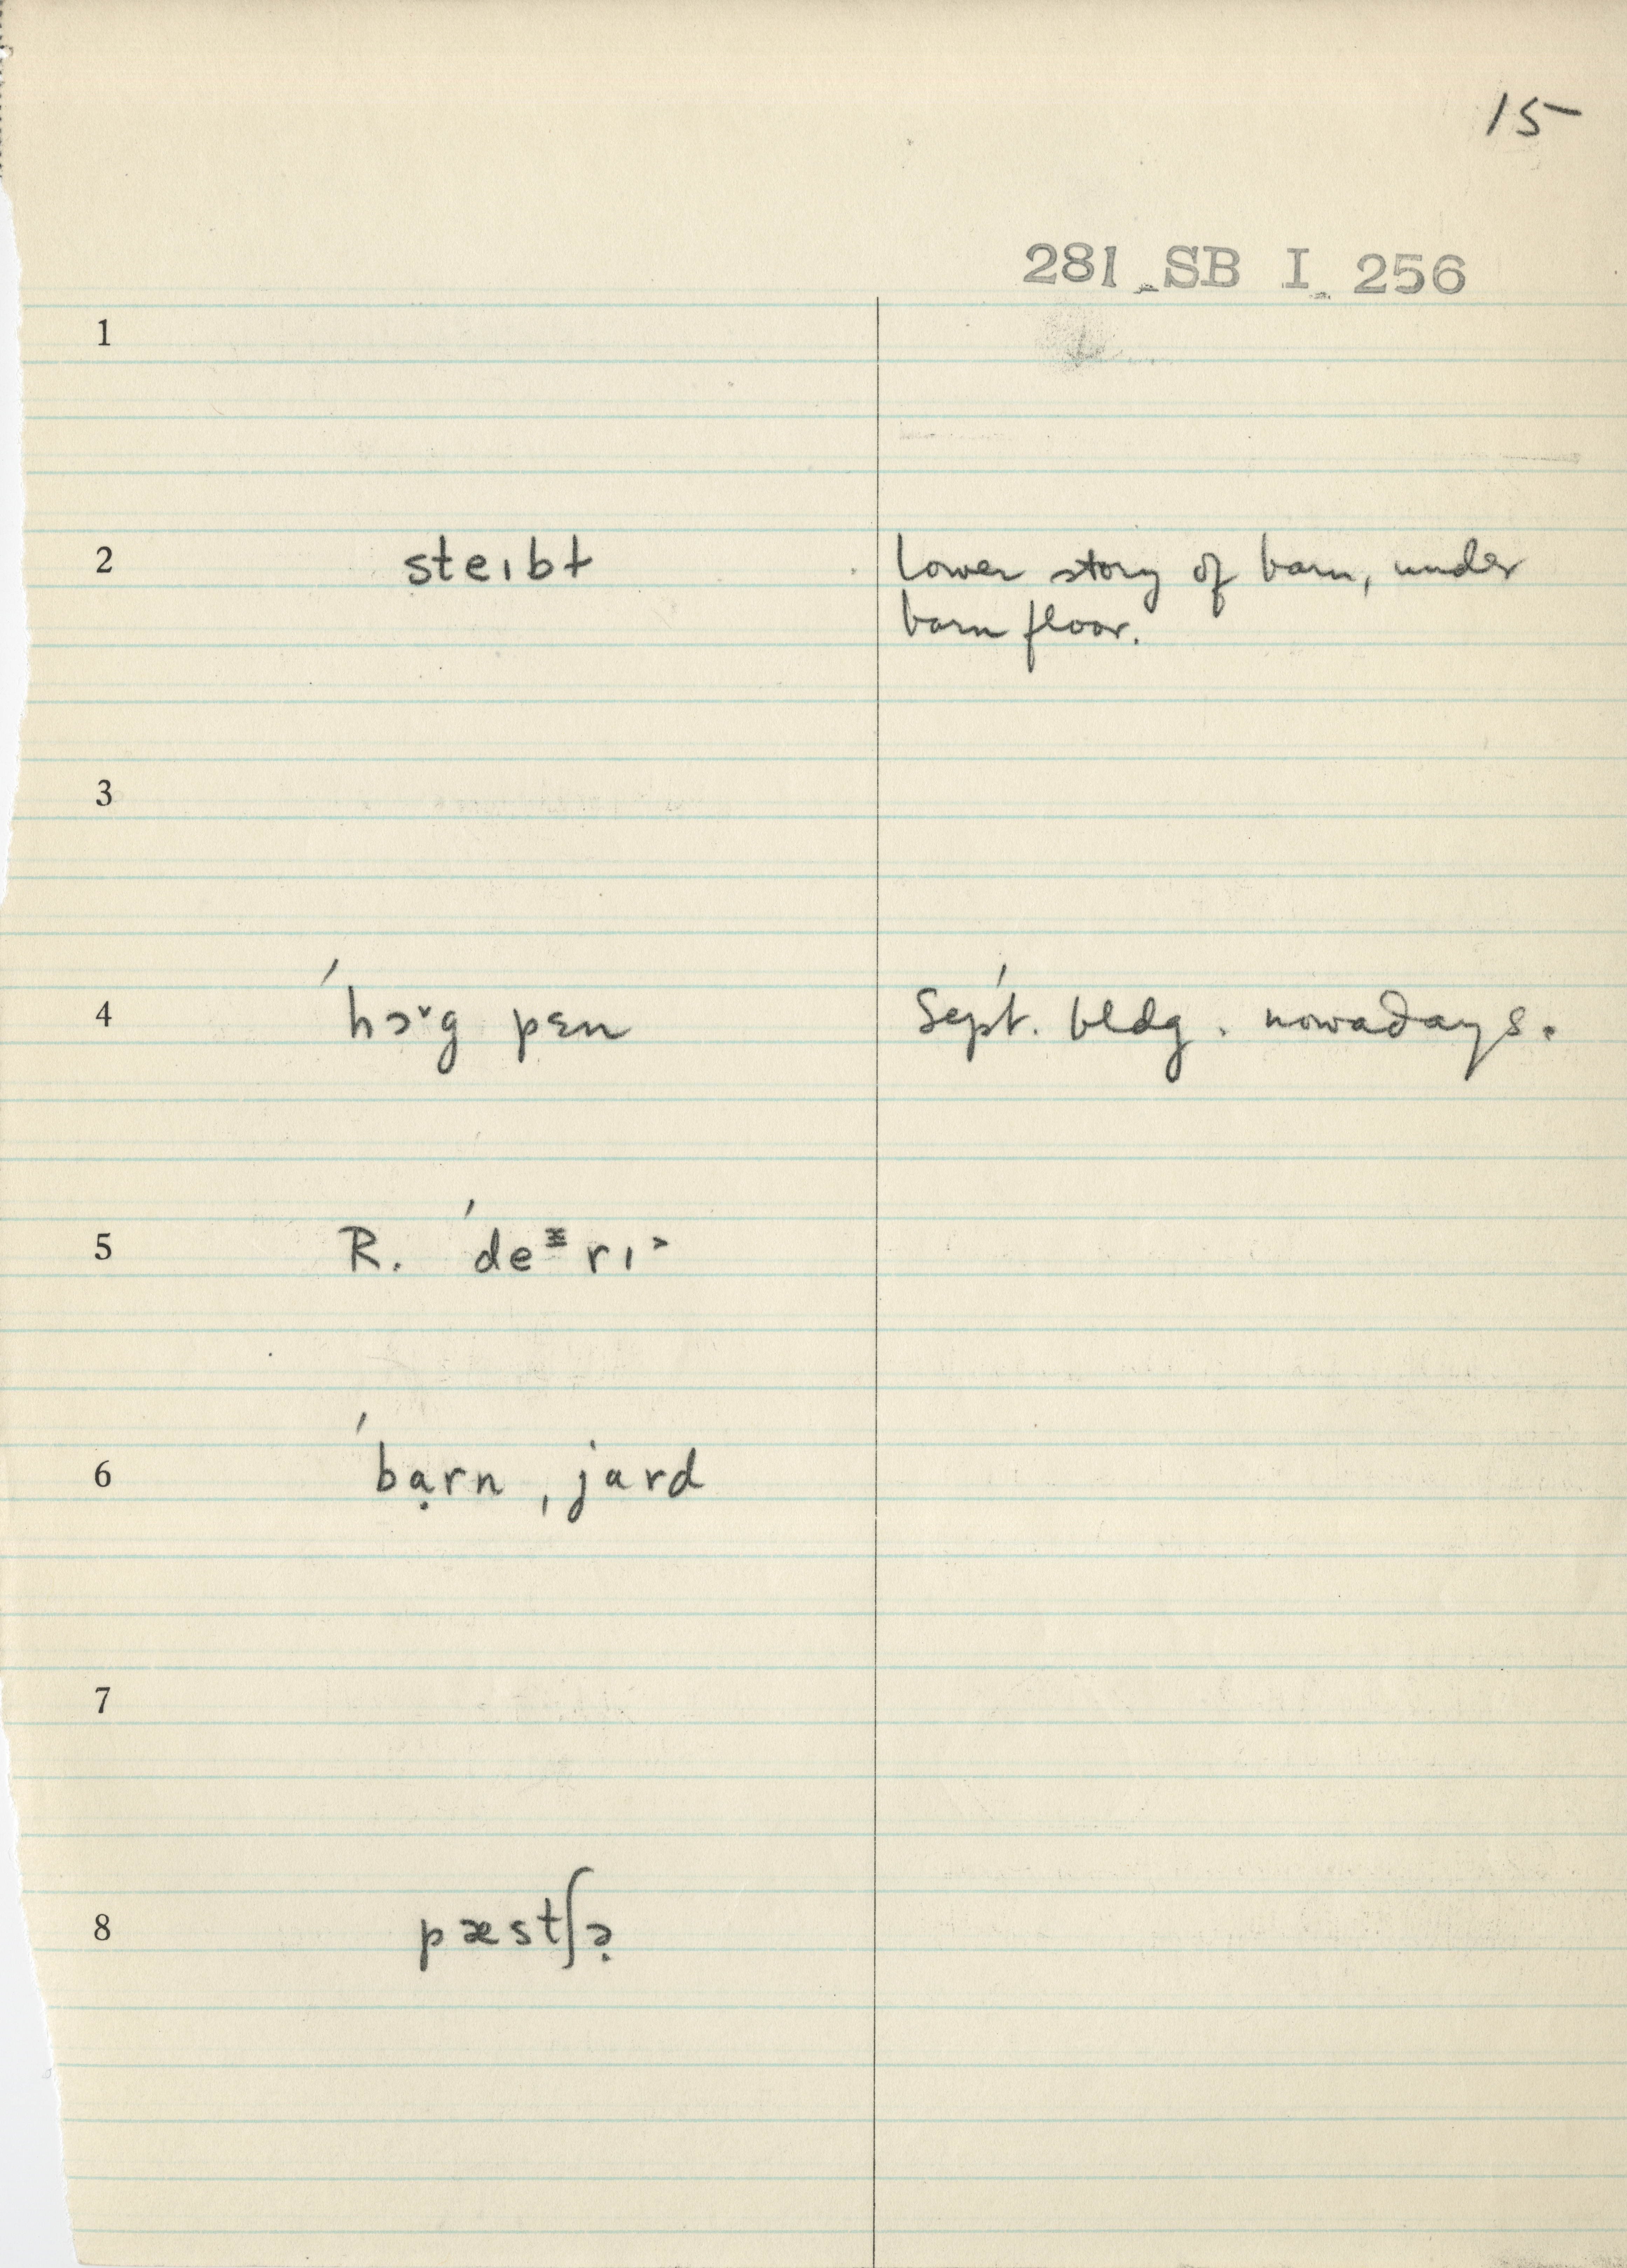 15
281 SB I 256
1
2 steɪbɫ lower story of barn, under
barn floor.
3
4 ˈhɔ˅g pɛn Sep't. bldg. nowadays.
5 R. ˈdeᵌrɪ˃
6 ˈbạrn ˌjard
7
8 pæstʃə̣